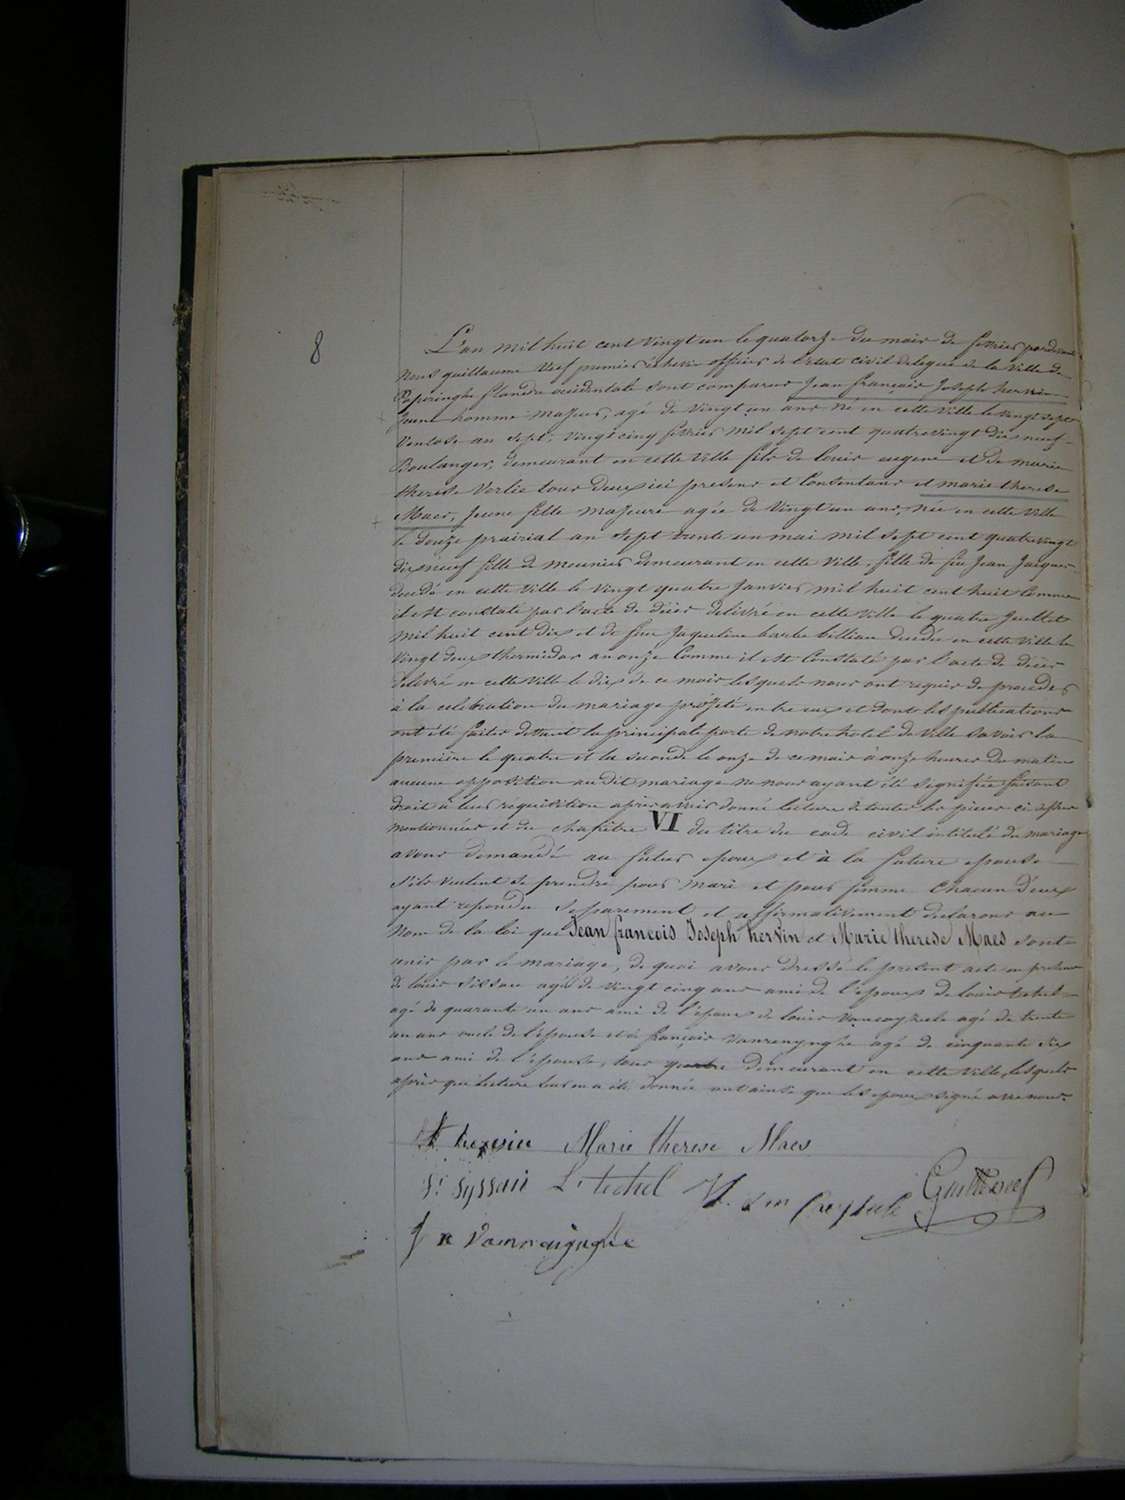 8
L'an mil huit cent vingt un le quatorze du mois de fevrier pardevant
Nous guillaume Neef premier echevin officier de l'etat civil delegué de la Ville de
Poperinghe flandre occidentale sont comparus Jean françois Joseph hervin
Jeune homme majeur, agé de vingt un ans né en cette Ville le vingt sept
Ventose an sept, vingt cinq fevrier mil sept cent quatrevingt dix neuf
Boulanger, demeurant en cette Ville fils de louis eugene et de marie
therese Verlie tous deux ici presens et Consentans et marie therese
Maes, Jeune fille majeure agée de Vingt un ans, née en cette Ville
le douze prairial an sept trente un mai mil sept cent quatrevingt
dixneuf fille de meunier demeurant en cette Ville, fille de feu Jean Jacques
decedé en cette Ville le vingt quatre Janvier mil huit cent huit Comme
il est constaté par l'acte de décès delivré en cette Ville le quatre Juillet
mil huit cent dix et de feue Jaqueline barbe billiau decedée en cette Ville le
Vingt deux thermidor an onze Comme il est Constaté par l'acte de décès
delivré en cette Ville le dix de ce mois lesquels nous ont requis de proceder
à la celebration du mariage projeté entre eux et dont les publications
ont été faites devant la principale porte de notre hotel de Ville savoir la
première le quatre et la seconde le onze de ce mois à onze heures du matin
aucune opposition audit mariage ne nous ayant été signifiée faisant
droit à leur requisition après avoir donné lecture de toutes les pieces ci dessus
mentionnées et du chapitre VI du titre du code civil intitulé du mariage
avons demandé au futur epoux et à la future epouse
s'ils veulent se prendre pour mari et pour femme Chacun d'eux
ayant repondu separement et affirmativement declarons au
Nom de la loi que Jean francois Joseph hervin et Marie therese Maes sont
unis par le mariage, de quoi avons dressé le present acte en presence
de louis Sissau agé de vingt cinq ans ami de l'epoux de louis techel
agé de quarante un ans ami de l'epoux de louis Vancayzeele agé de trente
un ans oncle de l'epouse et de françois Vanrenynghe agé de cinquante six
ans ami de l'epouse, tous quatre demeurant en cette Ville, lesquels
après que lecture leur en a été donnée ont ainsi que les epoux signé avec nous.
Marie therese Maes
L. techel